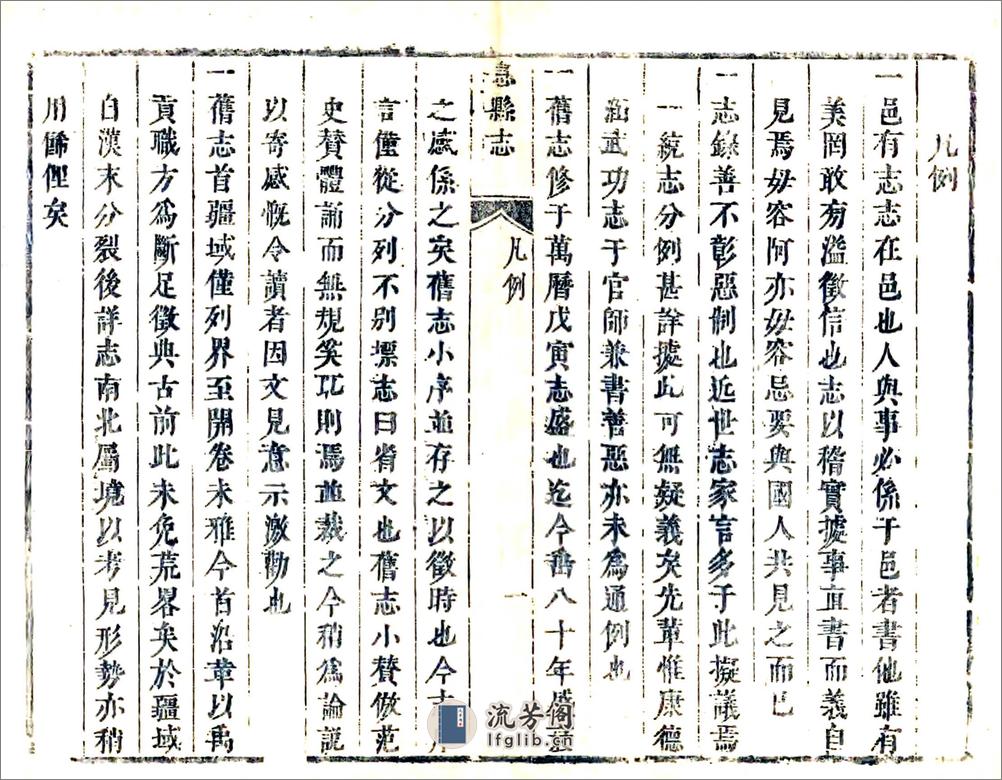 凡例
一邑有志志在邑也人與事必係于邑者書他雖有
美罔敢旁溢徵信也志以稽實據事直書而義自
見焉毋容阿亦毋容忌要與國人共見之而已
一志錄善不彰惡制也近世志家言多于此擬議焉
一統志分例甚詳據此可無疑義矣先輩惟康德
涵武功志于官師兼書善惡亦未為通例也
一舊志修于萬曆戊寅志盛也迄今垂八十年盛
息縣志
凡例
一
之感係之矣舊志小序並存之以徵時也今
言僅從分列不別標志曰省文也舊志小贊倣范
史贊體誦而無規笑
則焉並裁之今稍為論說
以寄感慨令讀者因文見意示激勸也
一舊志首疆域僅列界至開卷未雅今首沿革以禹
貢職方為斷足徵典古前此未免荒畧矣於疆域
自漢來分裂後詳志南北屬境以考見形勢亦稍
用俻俚矣
流芳阁
lfglib.com